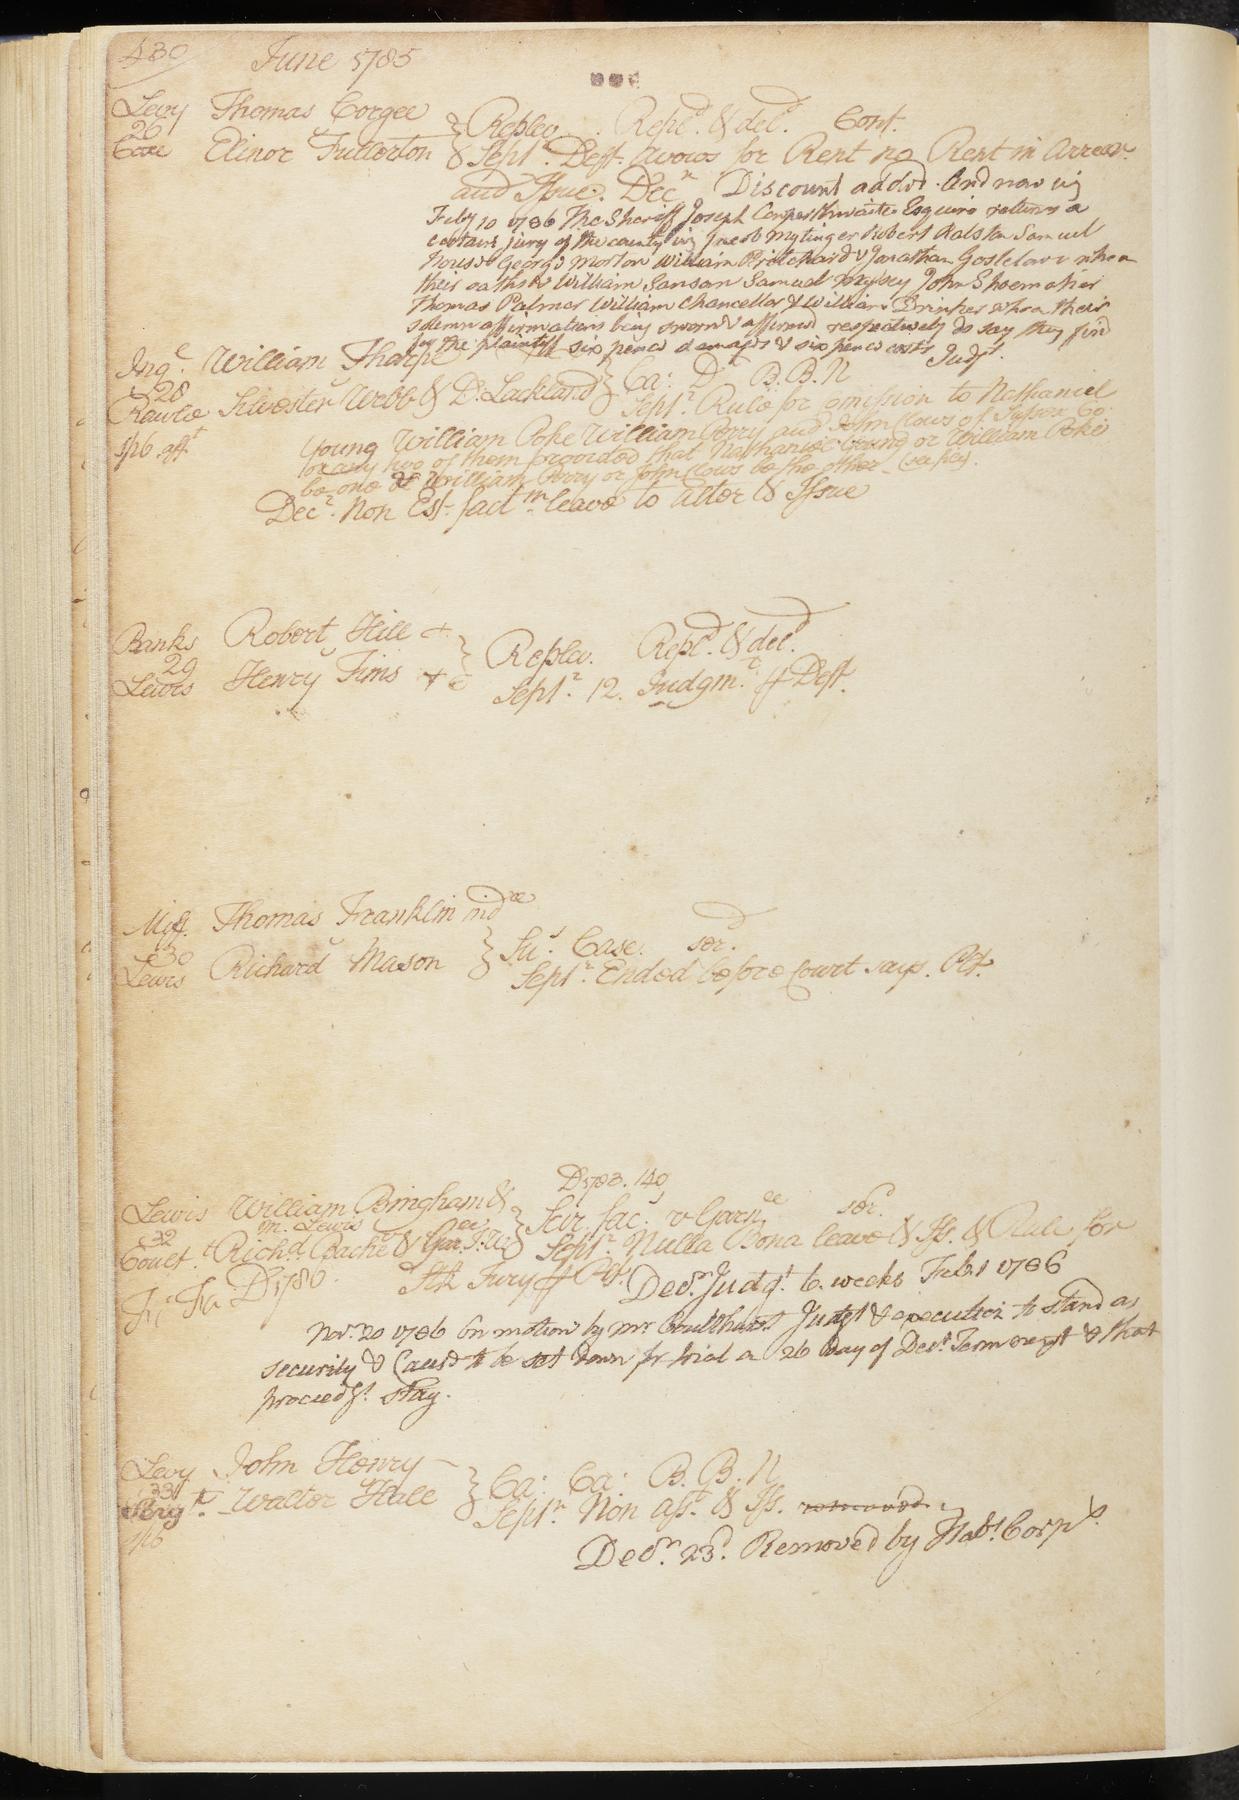 430 June 1785
Levy Thomas Corgee } Replev. Repld. & deld. Cont.
26
Coxe Elinor Fullerton & Septr. Deft. avows for Rent no Rent in Arrear
and Issue. Decr Discount added. And now viz
Feby 10 1786 The Sheriff Joseph Cowperthwaite Esquire returns a
certain jury of the county viz Jacob Mytinger Robert Ralston Samuel
House George Morton William Pritchard & Jonathan Gostelowe when
their oaths & William Sansom Samuel John Shoemaker
Thomas Palmer William Chancellor & William Drinker when their
solemn affirmations being sworn & affirmed respectively do say they find
for the plaintiff six pence damages & six pence costs Judgt.
Ingl. William Tharpe } Ca: Dr B. B. N
28
Rawle Silvester Webb & D. Lackland Septr. Rule for omission to Nathaniel
1/6 afft Young William Poke William Perry and John Clows of Sussex Co:
or any two of them provided that Nathaniel Young or William Poke
be one & William Perry or John Clows be the other
Decr. Non Est fact m leave to alter & Issue
Banks Robert Hill + } Replev. Repld. & deld.
29
Lewis Henry Tims + Septr. 12. Judgmt. ff Deft.
Miff. Thomas Franklin indee
30
Lewis Richard Mason } Sus. Case. ser.
Septr. Ended before Court says Plt.
D 1783. 140
Lewis William Bingham & } Scir. fac. v Garnee ser.
m. Lewis
32
Coult. Richd. Bache & Septr. Nulla Bona leave & Iss. & Rule for
Fi: Fa: D 1786. Stk Jury ff Plt. Decr. Judgt. 6 weeks Feb. 1 1786
Novr. 20 1786 On motion by mr Coulthurst Judgt & execution to stand as
security & Cause to be set down for trial a 26 Day of Decr. Term next & that
proceedgs. stay.
Levy John Henry } Ca: Ca: B. B. N
33
Sergt. Walter Hall Septr. Non asst. & Iss. removed.
1/6
Decr. 23d. Removed by Habs. Corps.